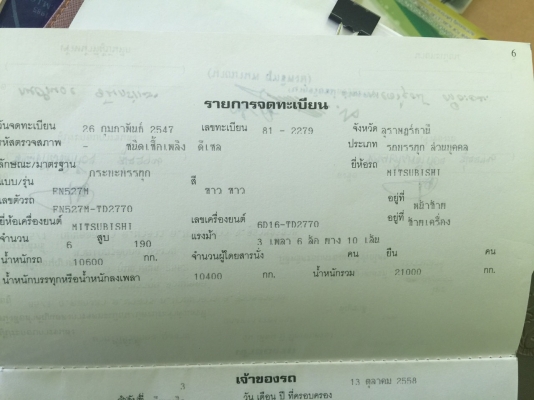 6
รายการจดทะเบียน
วันจดทะเบียน 26 กุมภาพันธ์ 2547 เลขทะเบียน 81 - 2279 จังหวัด สุราษฎร์ธานี
รหัสตรวจสภาพ - ชนิดเชื้อเพลิง ดีเซล ประเภท รถบรรทุก ส่วนบุคคล
ลักษณะ/มาตรฐาน กระบะบรรทุก ยี่ห้อรถ MITSUBISHI
แบบ/รุ่น FN527M สี ขาว ขาว
เลขตัวรถ FN527M-TD2770 อยู่ที่ หน้าซ้าย
ยี่ห้อเครื่องยนต์ MITSUBISHI เลขเครื่องยนต์ 6D16-TD2770 อยู่ที่ ซ้ายเครื่อง
จำนวน 6 สูบ 190 แรงม้า 3 เพลา 6 ล้อ ยาง 10 เส้น
น้ำหนักรถ 10600 กก. จำนวนผู้โดยสารนั่ง คน ยืน คน
น้ำหนักบรรทุกหรือน้ำหนักลงเพลา 10400 กก. น้ำหนักรวม 21000 กก.
เจ้าของรถ
3 13 ตุลาคม 2558
วัน เดือน ปี ที่ครอบครอง